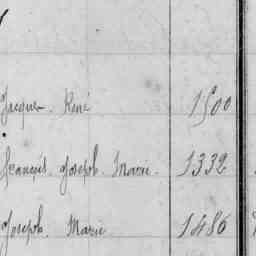 Jacques René 1500
François Joseph Marie 1332
Joseph Marie 1486